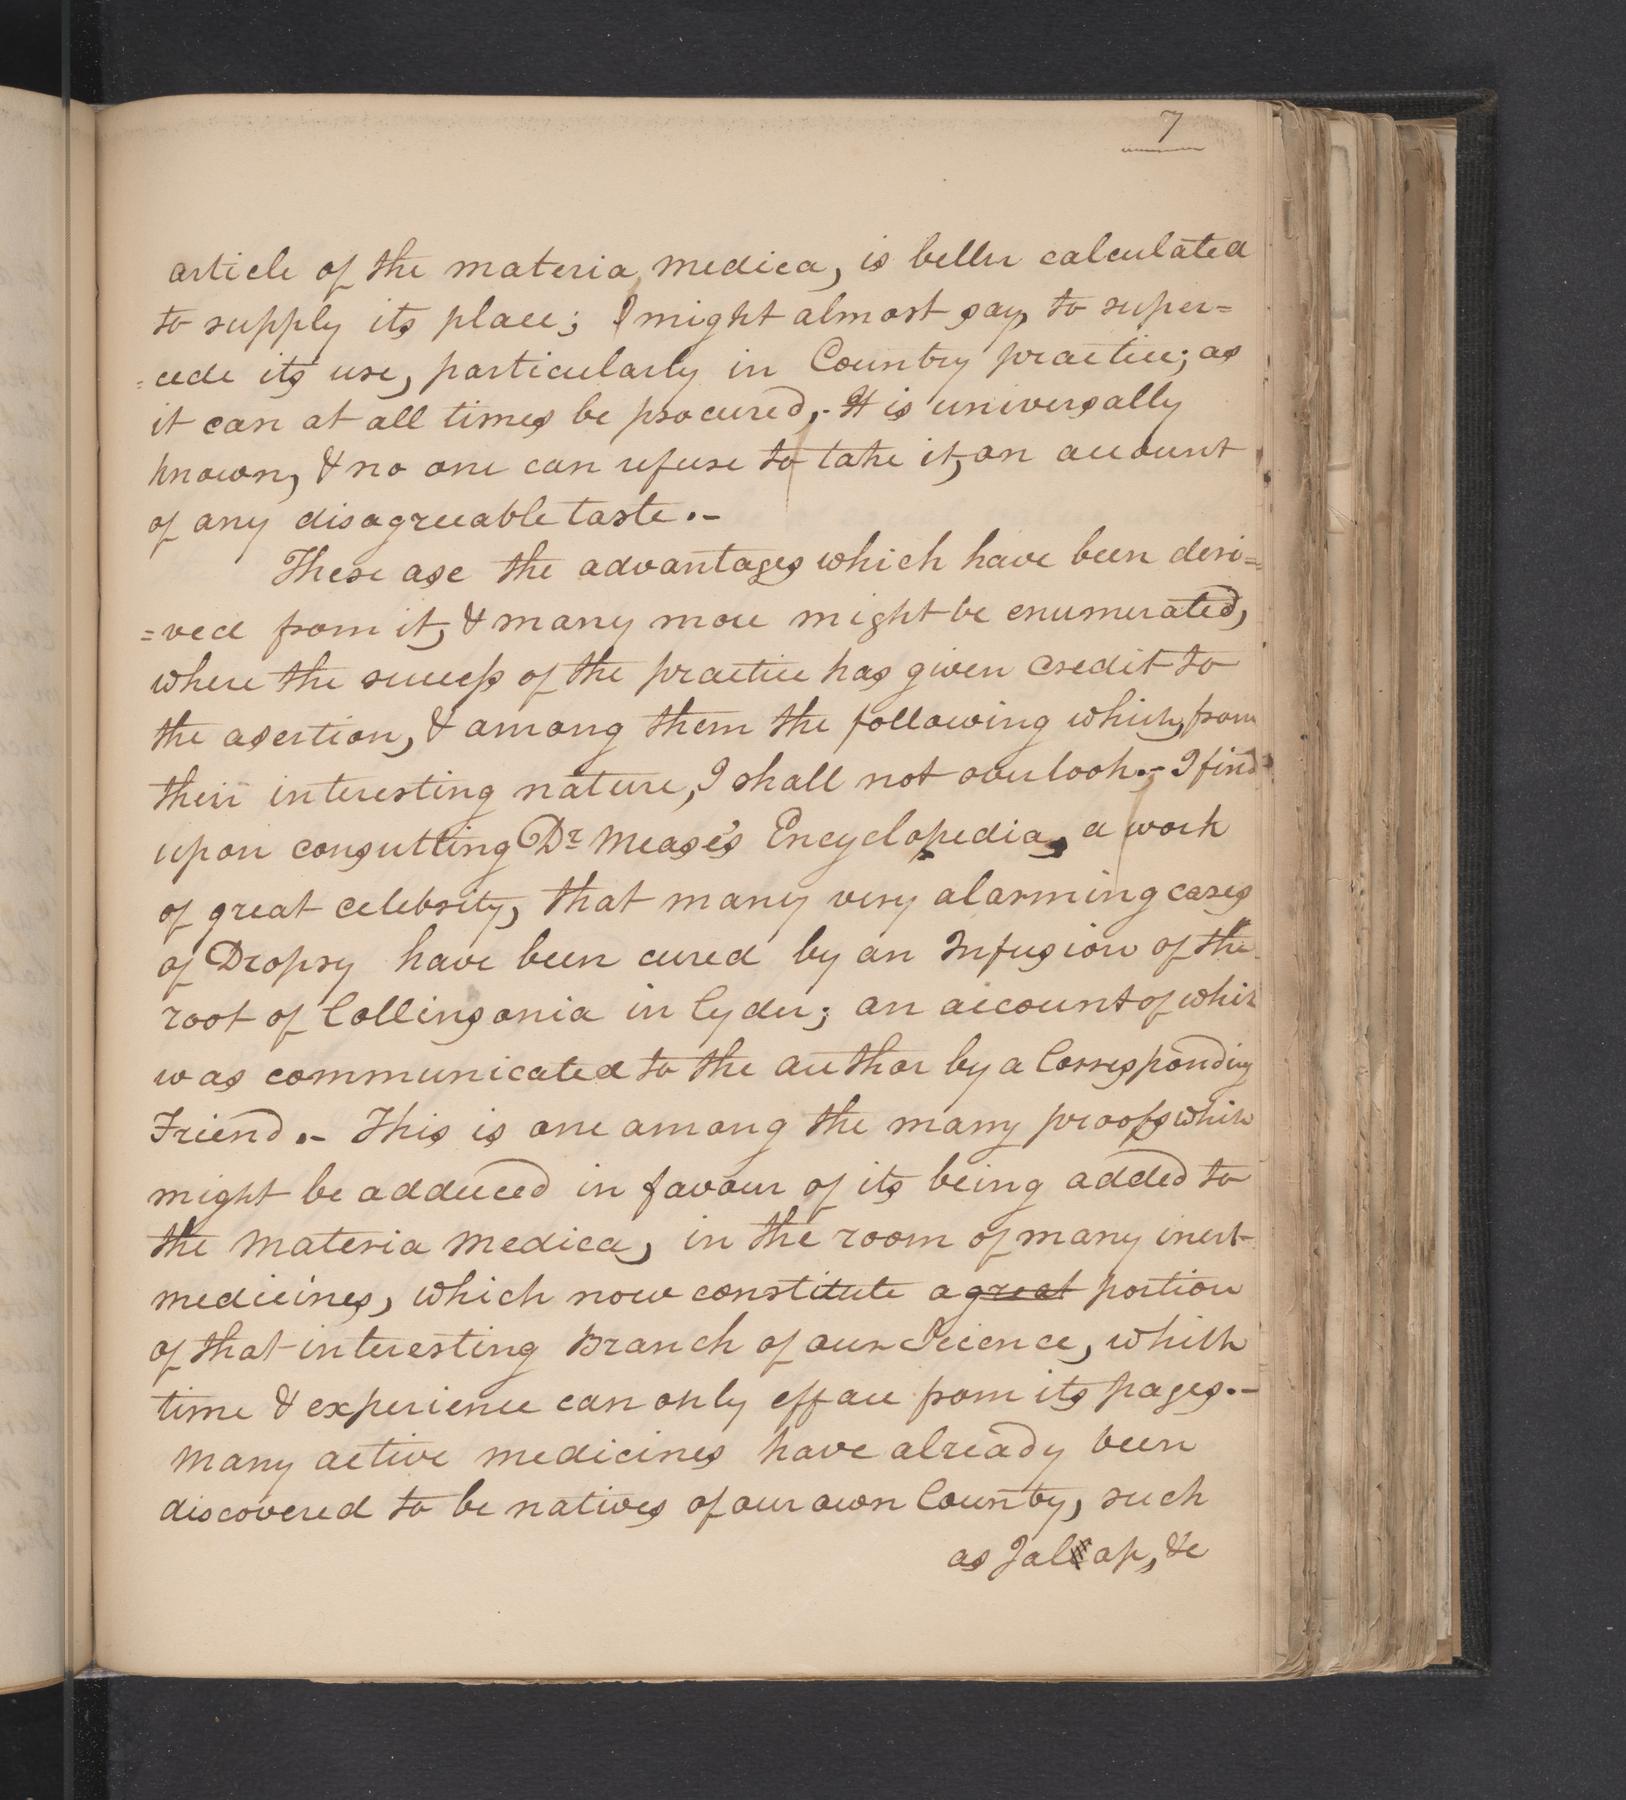 7
article of the materia medica, is better calculated
to supply its place; I might almost say, to super=
=cede its use, particularly in Country practice; as
it can at all times be procured,- It is universally
known, & no one can refuse to take it, on account
of any disagreeable taste.-
These are the advantages which have been deri=
=ved from it, & many more might be enumerated,
where the success of the practice has given credit to
the asertion, & among them the following which, from
their interesting nature, I shall not overlook.- I find
upon consutting Dr Mease's Encyclopedia, a work
of great celebrity, that many very alarming cases
of Dropsy have been cured by an Infusion of the
root of Collinsonia in Cyder; an account of which
was communicated to the author by a Corresponding
Friend.- This is one among the many proofs which
might be adduced in favour of its being added to
the Materia Medica, in the room of many inert
medicines, which now constitute a great portion
of that interesting Branch of our Science, which
time & experience can only efface from its pages.-
Many active medicines have already been
discovered to be natives of our own County, such
as Jalap, &c